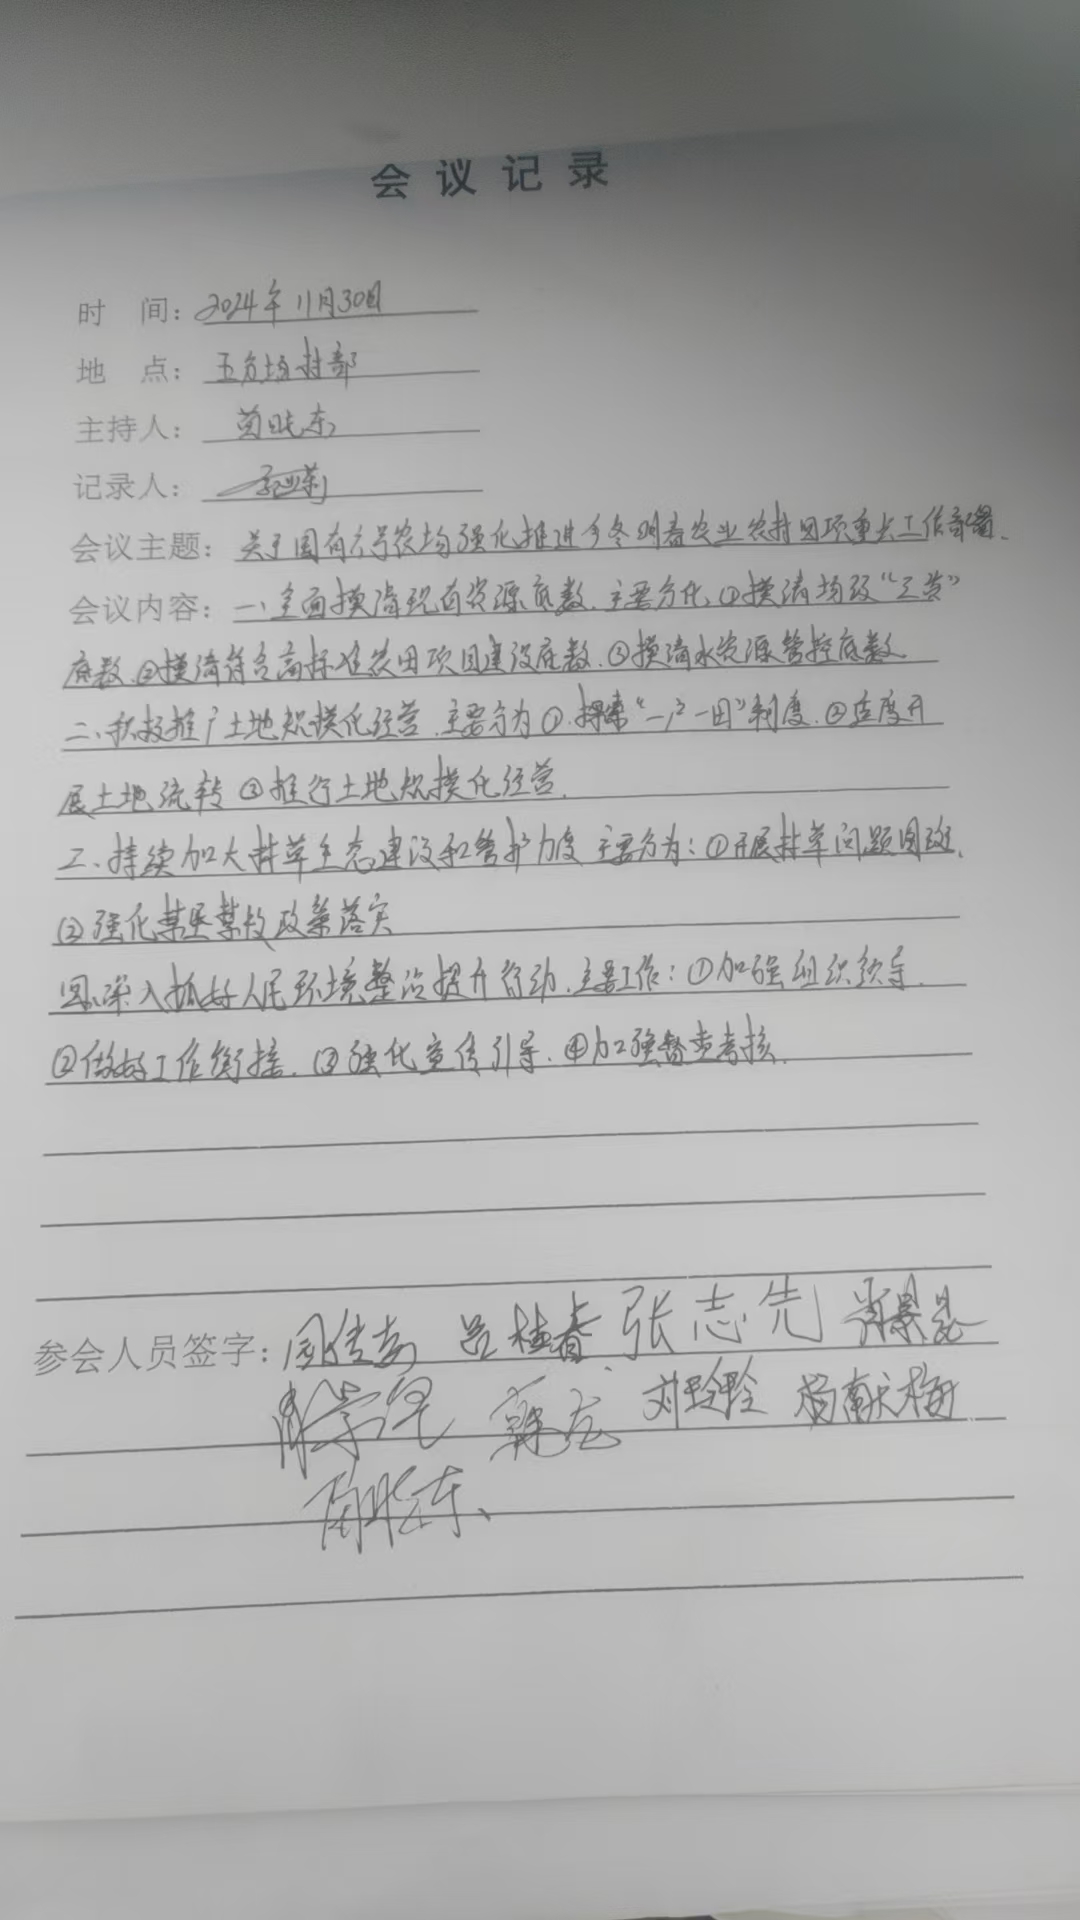 会议记录
时 间：2024年11月30日
地 点：五分场村部
主持人：东
记录人：
会议主题：关于国有六号农场强化推进今冬明春农业农村四项重点工作部署.
会议内容：一、全面摸清现有资源底数.主要分化①摸清场政“三资”
底数.②摸清符合高标准农田项目建设底数.③摸清水资源管控底数.
二、积极推广土地规模化经营.主要分为①.探索“一户一田”制度.②适度开
展土地流转③推行土地规模化经营.
三、持续加大林草生态建设和管护力度 主要分为：①开展林草问题图斑.
②强化禁垦禁牧政策落实
四.深入抓好人民环境整治提升行动.主要工作：①加强组织领导.
②做好工作衔接.③强化宣传引导.④加强督查考核.
参会人员签字：吕桂春 张志先
刘玲玲 杨献梅
东、